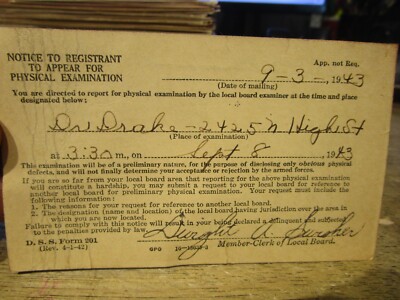 NOTICE TO REGISTRANT
TO APPEAR FOR
PHYSICAL EXAMINATION
App. not Req.
9-3-, 1943
(Date of mailing)
You are directed to report for physical examination by the local board examiner at the time and place
designated below:
Dr. Drake - 2425 N High St
(Place of examination)
at 3:30 m., on Sept 8, 1943
This examination will be of a preliminary nature, for the purpose of disclosing only obvious physical
defects, and will not finally determine your acceptance or rejection by the armed forces.
If you are so far from your local board area that reporting for the above physical examination
will constitute a hardship, you may submit a request to your local board for reference to
another local board for preliminary physical examination. Your request must include the
following information:
1. The reasons for your request for reference to another local board.
2. The designation (name and location) of the local board having jurisdiction over the area in
which you are now located.
Failure to comply with this notice will result in your being declared a delinquent and subjected
to the penalties provided by law.
Dwight A. Swisher
D. S. S. Form 201
(Rev. 4-1-42)
GPO
Member-Clerk of Local Board.